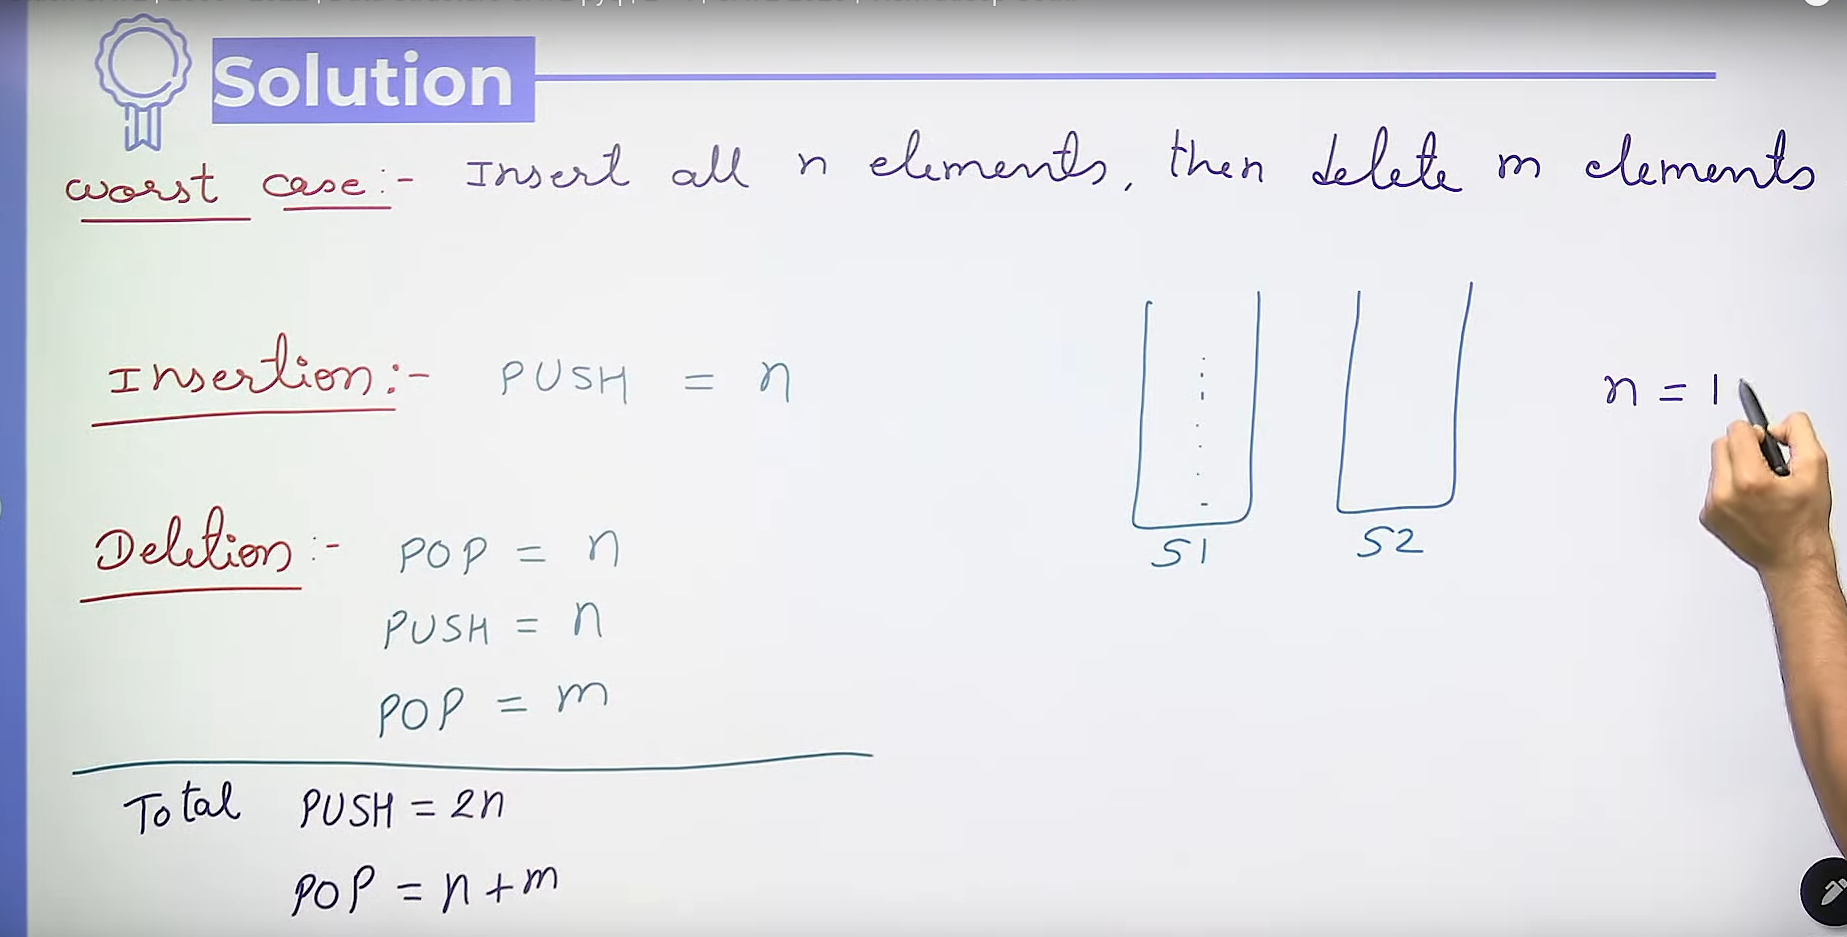 Solution
worst case:- Insert all n elements, then delete m elements
Insertion:- PUSH = n
n = 1
Deletion:- POP = n
PUSH = n
POP = m
S1 S2
Total PUSH = 2n
POP = n+m